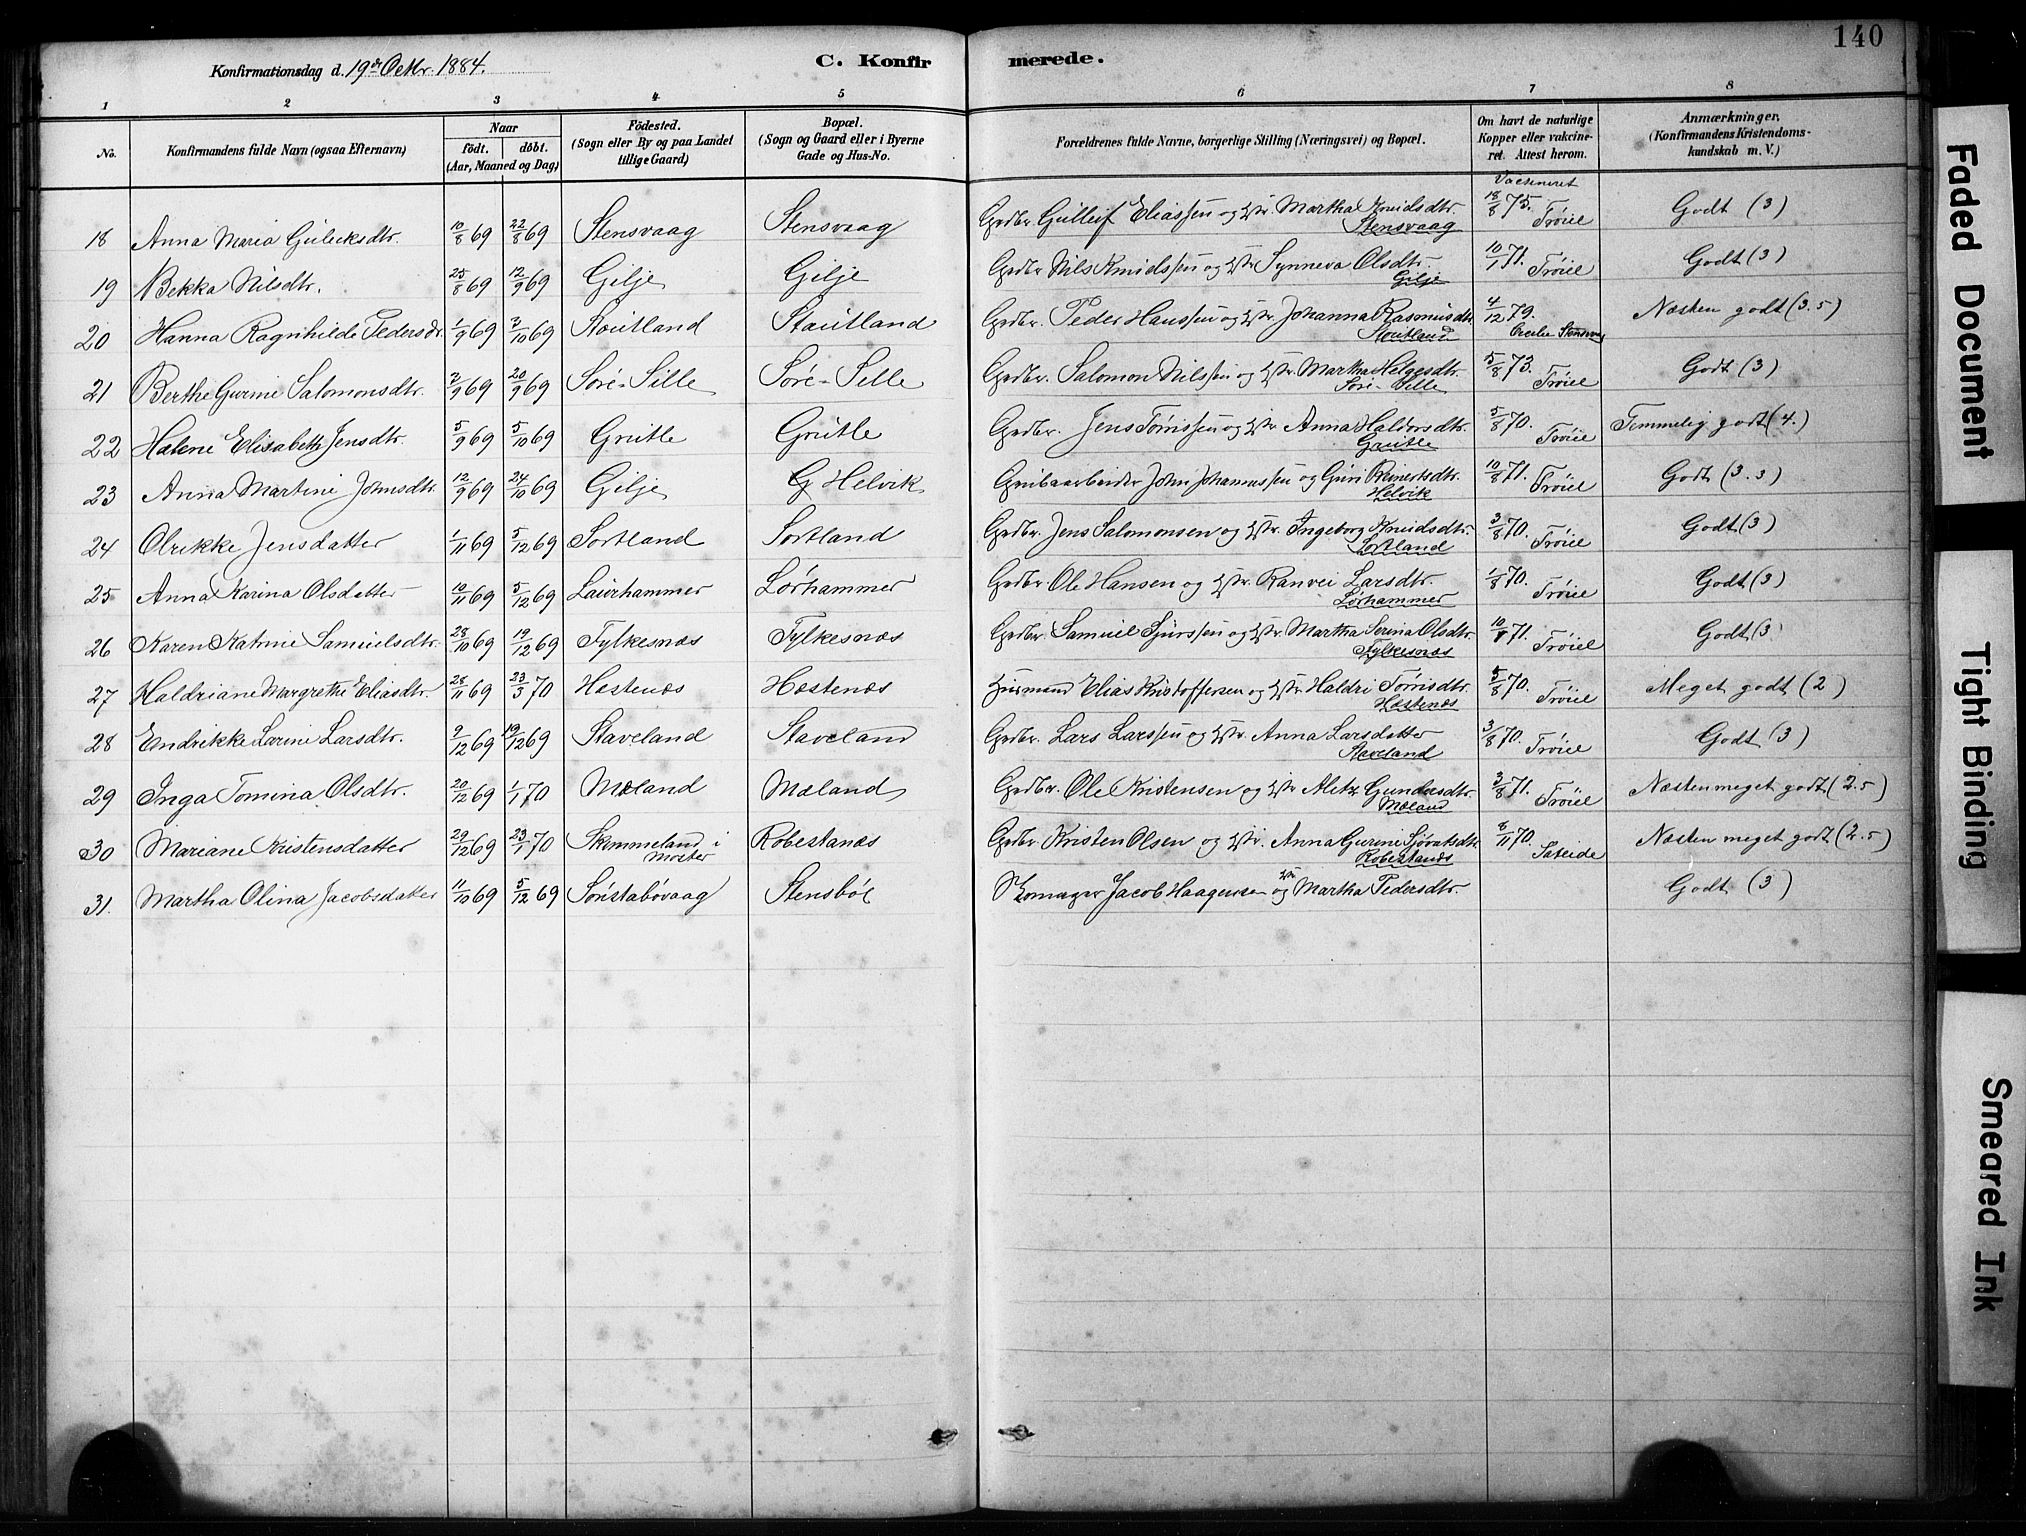 140
Konfirmationsdag d. 19de Octbr. 1884.
C. Konfirmerede.
1 2 3 4 5 6 7 8
No.
Konfirmandens fulde Navn (ogsaa Efternavn)
Naar
födt. döbt.
(Aar, Maaned og Dag)
Födested.
(Sogn eller By og paa Landet
tillige Gaard)
Bopæl.
(Sogn og Gaard eller i Byerne
Gade og Hus-No.
Forældrenes fulde Navne, borgerlige Stilling (Næringsvei) og Bopæl.
Om havt de naturlige
Kopper eller vakcine-
ret. Attest herom.
Anmærkninger.
(Konfirmandens Kristendoms-
kundskab m. V.)
Vaccineret
18 Anna Maria Gulleiksdtr. 10/8 69 22/8 69 Stensvaag Stensvaag Grdbr. Gulleif Eliassen og Hstr. Martha Knudsdtr. Stensvaag 18/8 75. Trøiel Godt (3)
19 Bekka Nilsdtr. 25/8 69 12/9 69 Gilje Gilje Grdbr. Nils Knudssen og Hstr. Synneva Olsdtr. Gilje 10/1 71. Trøiel Godt (3)
20 Hanna Ragnhilde Pedersdr. 1/9 69 3/10 69 Stoutland Stoutland Grdbr. Peder Hanssen og Hstr. Johanna Rasmusdtr. Stoutland 4/12 79. Cecilie Stensvaag Næsten godt (3.5)
21 Berthe Gurine Salomonsdtr. 2/9 69 20/9 69 Søre-Sille Søre-Selle Grdbr. Salomon Nilssen og Hstr. Martha Helgesdtr. Søre-Selle 5/8 73. Trøiel Godt (3)
22 Helene Elisabeth Jensdtr. 5/9 69 5/10 69 Grutle Grutle Grdbr. Jens Tørrissen og Hstr. Anna Haldorsdtr. Grutle 5/8 70. Trøiel Temmelig godt (4.)
23 Anna Martine Johnsdtr. 12/9 69 24/10 69 Gilje G Helvik Grubearbeider John Johannessen og Guri Reinertsdtr. Helvik 10/8 71. Trøiel Godt (3.3)
24 Olrikke Jensdatter 1/11 69 5/12 69 Sortland Sortland Grdbr. Jens Salomonsen og Hstr. Ingeborg Knudsdtr. Sortland 3/8 70. Trøiel Godt (3)
25 Anna Karina Olsdatter 10/11 69 5/12 69 Laurhammer Lørhammer Grdbr. Ole Hansen og Hstr. Ranvei Larsdtr. Lørhammer 1/8 70. Trøiel Godt (3)
26 Karen Katrine Samuelsdtr. 28/10 69 19/12 69 Fylkesnæs Fylkesnæs Grdbr. Samuel Sjurssen og Hstr. Martha Serina Olsdtr. Fylkesnæs 10/8 71. Trøiel Godt (3
27 Haldriane Margrethe Eliasdtr. 28/11 69 23/3 70 Hestenæs Hestenæs Husmand Elias Kristoffersen og Hstr. Haldri Tørrisdtr. Hestenæs 5/8 70. Trøiel Meget godt (2)
28 Endrikke Larine Larsdtr. 9/12 69 19/12 69 Staveland Staveland Grdbr. Lars Larssen og Hstr. Anna Larsdatter Staveland 3/8 70. Trøiel Godt (3)
29 Inga Tomina Olsdtr. 20/12 69 1/1 70 Mæland Mæland Grdbr. Ole Kristensen og Hstr. Aleta Gundersdtr. Mæland 3/8 71. Trøiel Næsten meget godt (2.5)
30 Mariane Kristensdatter 29/12 69 23/1 70 Skimmeland i Moster Robestanæs Grdbr. Kristen Olsen og Hstr. Anna Gurine Sjovatsdtr. Robestanæs 8/11 70. Sateide Næsten meget godt (2.5)
31. Martha Olina Jacobsdatter 11/10 69 5/12 69 Sønstabøvaag Stensbøl Skomager Jacob Haagensen og Hstr. Martha Pedersdtr. Godt (3)
Faded Document
Tight Binding
Smeared Ink